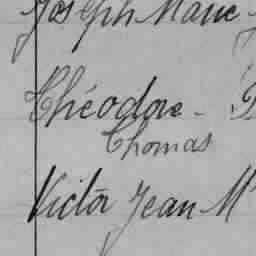 Joseph Marie
Théodore -
Thomas
Victor Jean M